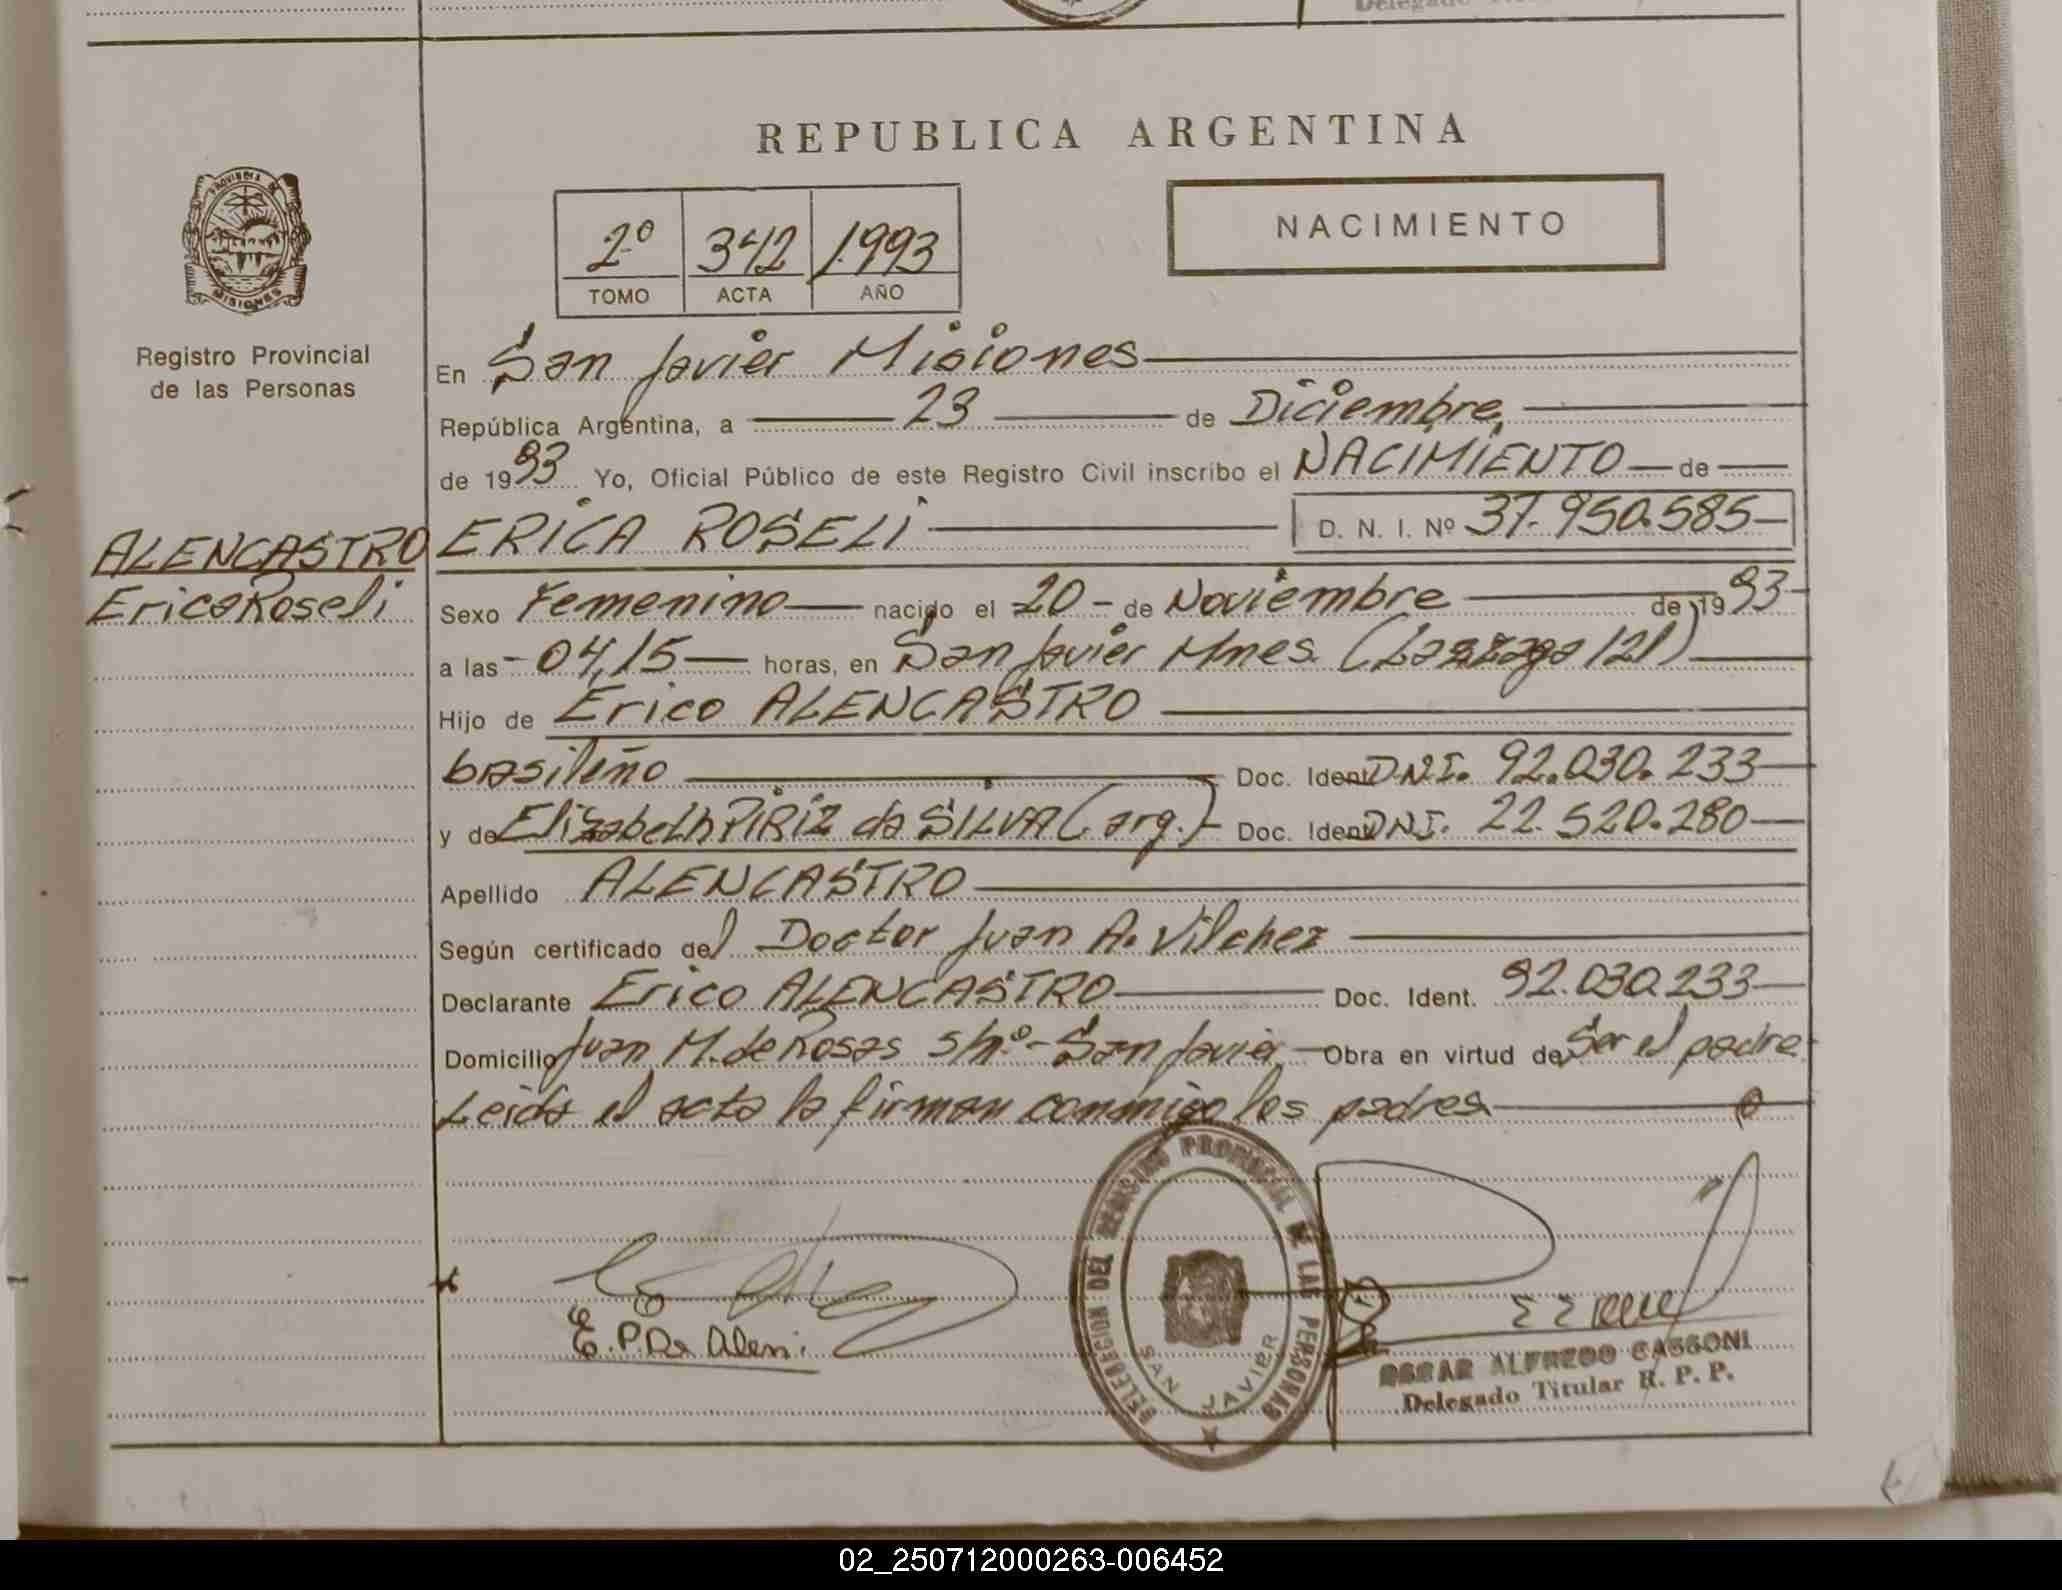 REPUBLICA ARGENTINA
PROVINCIA DE
MISIONES
Registro Provincial
de las Personas
2º 342 1993
TOMO ACTA AÑO
NACIMIENTO
En San Javier Misiones
República Argentina, a 23 de Diciembre
de 1993 Yo, Oficial Público de este Registro Civil inscribo el NACIMIENTO de
ALENCASTRO
Erica Roseli
ERICA ROSELI D. N. I. Nº 37.950.585
Sexo Femenino nacido el 20 de Noviembre de 1993
a las 04,15 horas, en San Javier Mnes. (121)
Hijo de Erico ALENCASTRO
brasileño Doc. Ident. D.N.I. 92.030.233
y de Elizabeth PIRIZ da SILVA (arg.) Doc. Ident. DNI. 22.520.280
Apellido ALENCASTRO
Según certificado del Doctor Juan A. Vilchez
Declarante Erico ALENCASTRO Doc. Ident. 92.030.233
Domicilio Juan M. de Rosas s/nº - San Javier Obra en virtud de Ser el padre
Leida el acta la firman conmigo los padres
DELEGACION DEL REGISTRO PROVINCIAL DE LAS PERSONAS
SAN JAVIER
E. P. De Alen.
OSCAR ALFREDO CASSONI
Delegado Titular R. P. P.
02_250712000263-006452